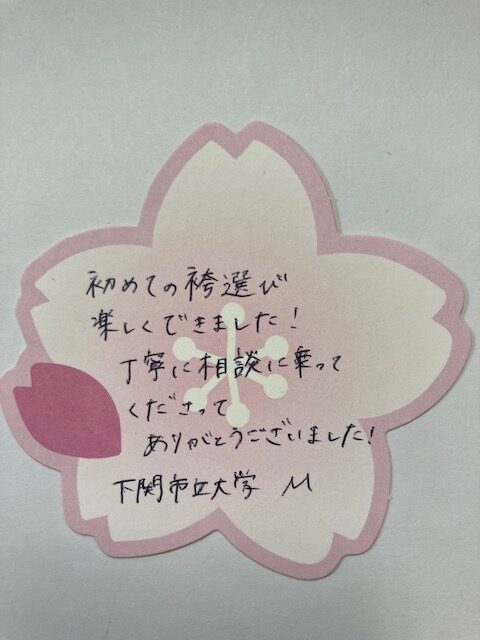 初めての袴選び
楽しくできました!
丁寧に相談に乗って
くださって
ありがとうございました!
下関市立大学 M